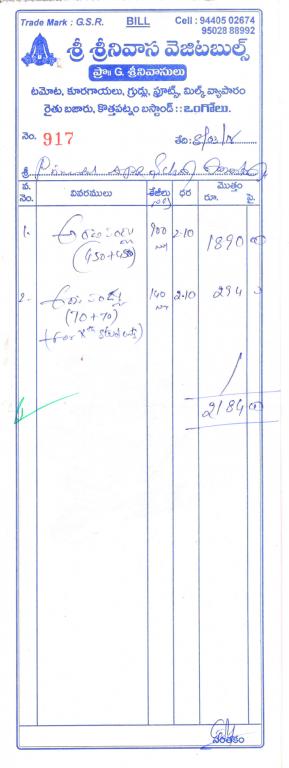 Trade Mark : G.S.R. BILL Cell : 94405 02674
95028 88992
శ్రీ శ్రీనివాస వెజిటబుల్స్
ప్రొః G. శ్రీనివాసులు
టమోట, కూరగాయలు, గ్రుడ్లు, ఫ్రూట్స్, మిల్క్ వ్యాపారం
రైతు బజారు, కొత్తపట్నం బస్టాండ్ :: ఒంగోలు.
నెం. 917 తేది:
శ్రీ
వ. నెం. వివరములు కేజీలు ధర మొత్తం
రూ. పై.
1. అరటి పండ్లు 900 2-10 1890 00
(450+450)
2- అరటి పండ్లు 140 2-10 294
(70+70)
2184 00
వర్తకం